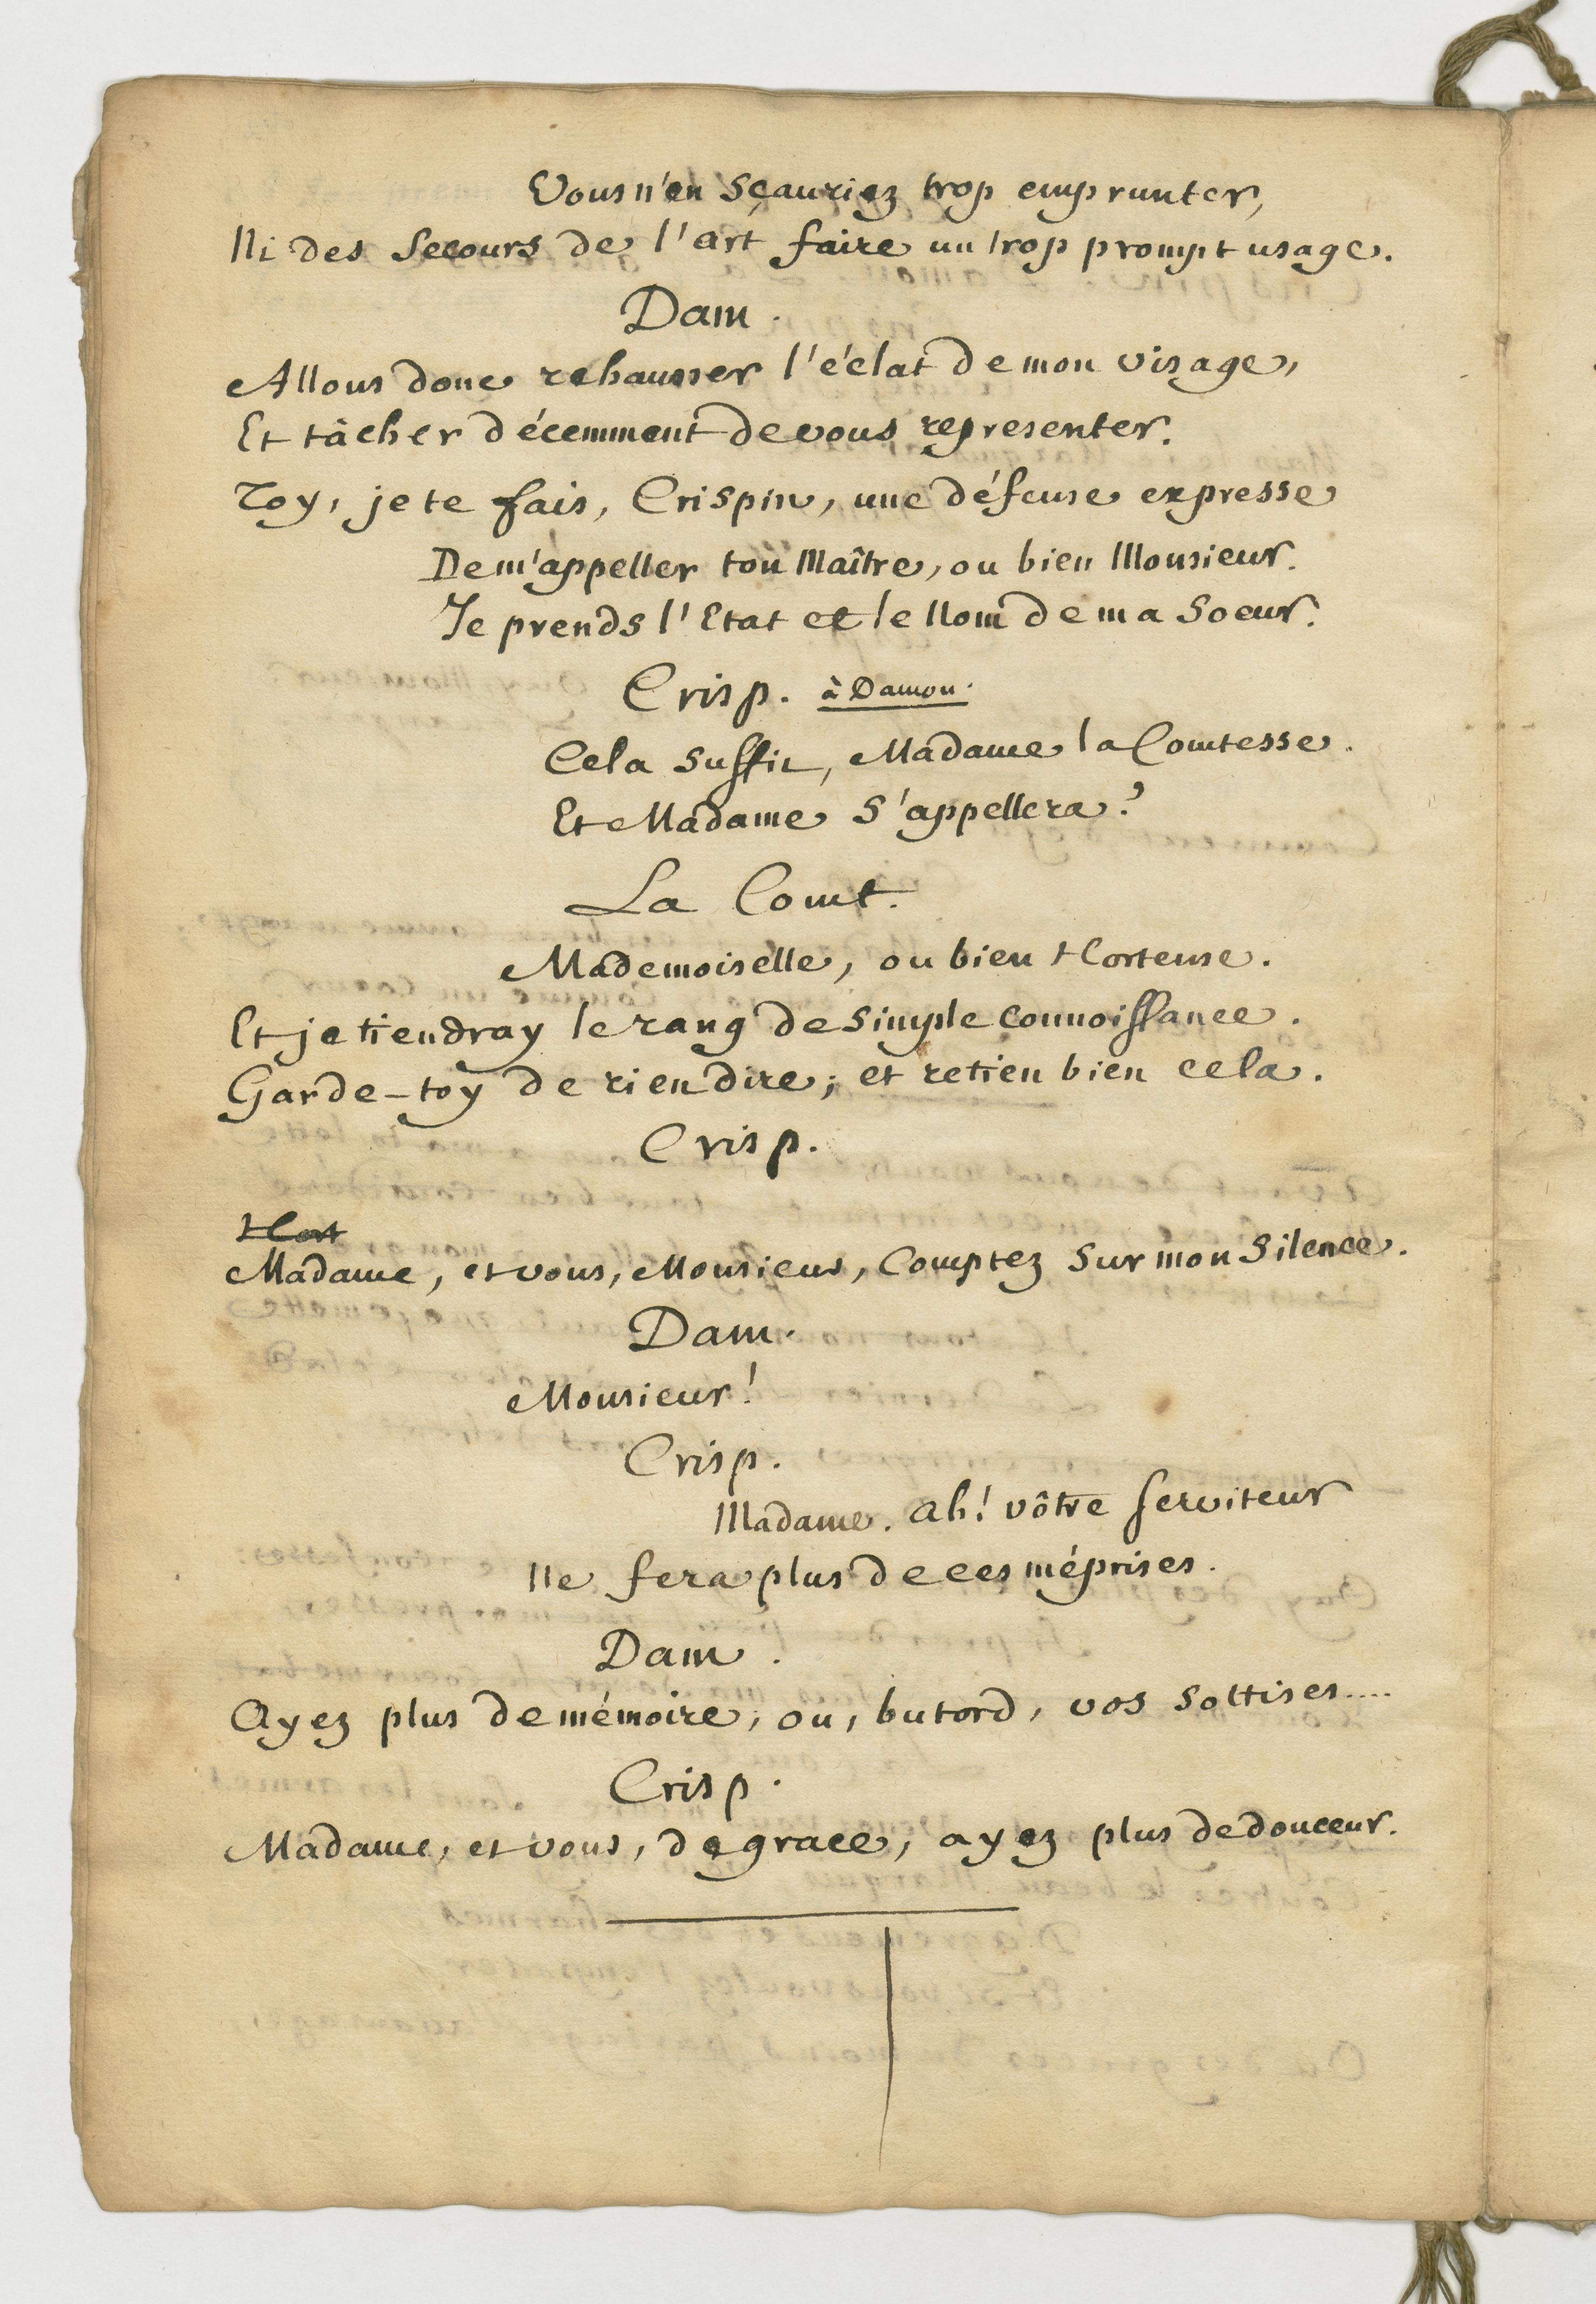 Vous n'en sçauriez trop emprunter,
Ni des secours de l'art faire un trop prompt usage.
Dam.
Allons donc rehausser l'éclat de mon visage,
Et tâcher décemment de vous representer.
Toy, je te fais, Crispin, une défense expresse
De m'appeller ton Maître, ou bien Monsieur.
Je prends l'Etat et le Nom de ma soeur.
Crisp. à Damon.
Cela suffit, Madame la Comtesse.
Et Madame s'appellera?
La Comt.
Mademoiselle, ou bien Hortense.
Et je tiendray le rang de simple connoissance.
Garde-toy de rien dire; et retien bien cela.
Crisp.
Hort
Madame, et vous, Monsieur, Comptez sur mon silence.
Dam.
Monsieur!
Crisp.
Madame. ah! vôtre serviteur
Ne fera plus de ces méprises.
Dam.
Ayez plus de mémoire, ou, butord, vos sottises....
Crisp.
Madame, et vous, de grace, ayez plus de douceur.